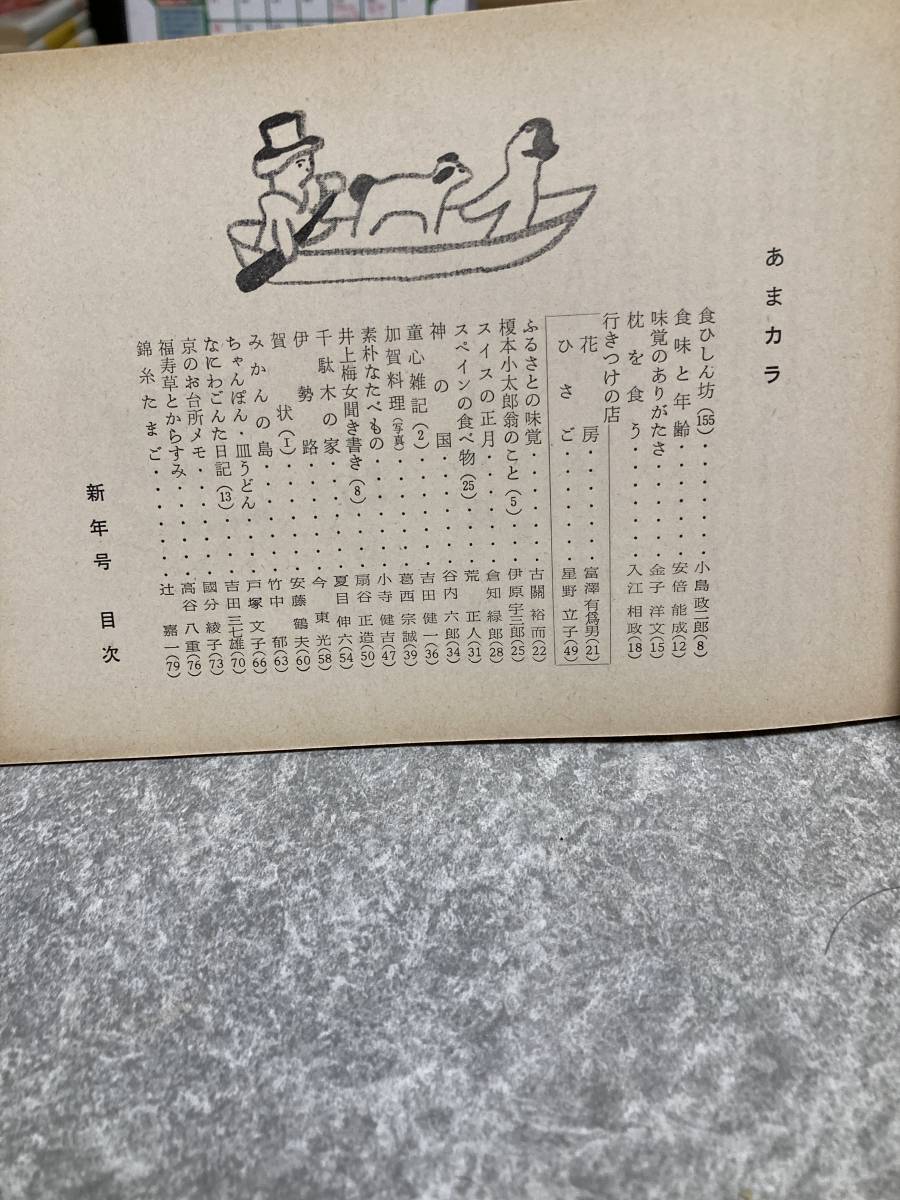 あまカラ
食ひしん坊(155)・・・・・・小島政二郎(8)
食味と年齢・・・・・・安倍能成(12)
味覚のありがたさ・・・・・金子洋文(15)
枕を食う・・・・・・入江相政(18)
行きつけの店
花房・・・・・・富澤有爲男(21)
ひさご・・・・・・星野立子(49)
ふるさとの味覚・・・・・・古關裕而(22)
榎本小太郎翁のこと(5)・・・伊原宇三郎(25)
スイスの正月・・・・・・倉知緑郎(28)
スペインの食べ物(25)・・・荒正人(31)
神の国・・・・・・谷内六郎(34)
童心雑記(2)・・・・・・吉田健一(36)
加賀料理(写真)・・・・・・葛西宗誠(39)
素朴なたべもの・・・・・・小寺健吉(47)
井上梅女聞き書き(8)・・・扇谷正造(50)
千駄木の家・・・・・・夏目伸六(54)
伊勢路・・・・・・今東光(58)
賀状(I)・・・・・・安藤鶴夫(60)
みかんの島・・・・・・竹中郁(63)
ちゃんぽん・皿うどん・・・・戸塚文子(66)
なにわごんた日記(13)・・・吉田三七雄(70)
京のお台所メモ・・・・・・國分綾子(73)
福寿草とからすみ・・・・・高谷八重(76)
錦糸たまご・・・・・・辻嘉一(79)
新年号 目次